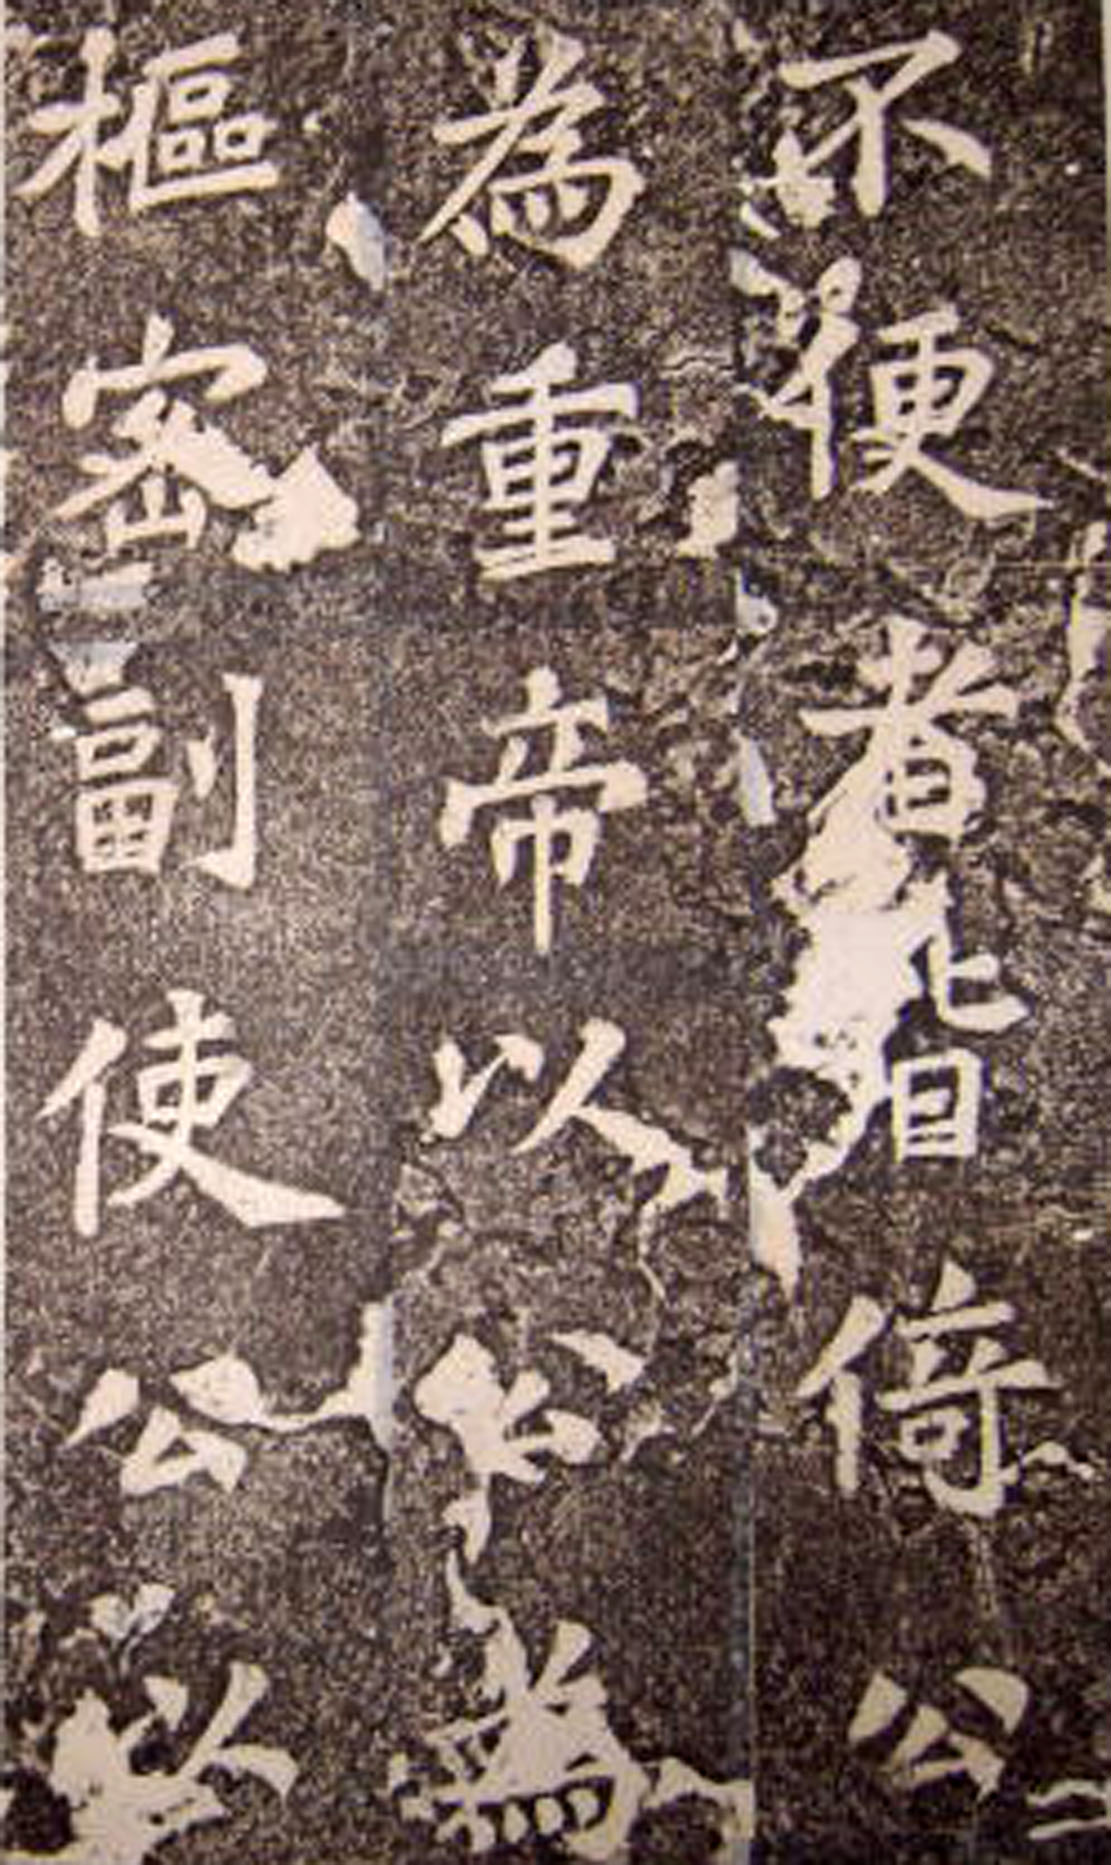 不便者皆倚公
為重帝以公為
樞密副使公以